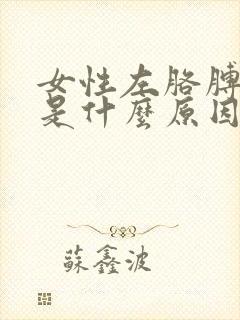 女性左胳膊
是什麼原因
蘇鑫波